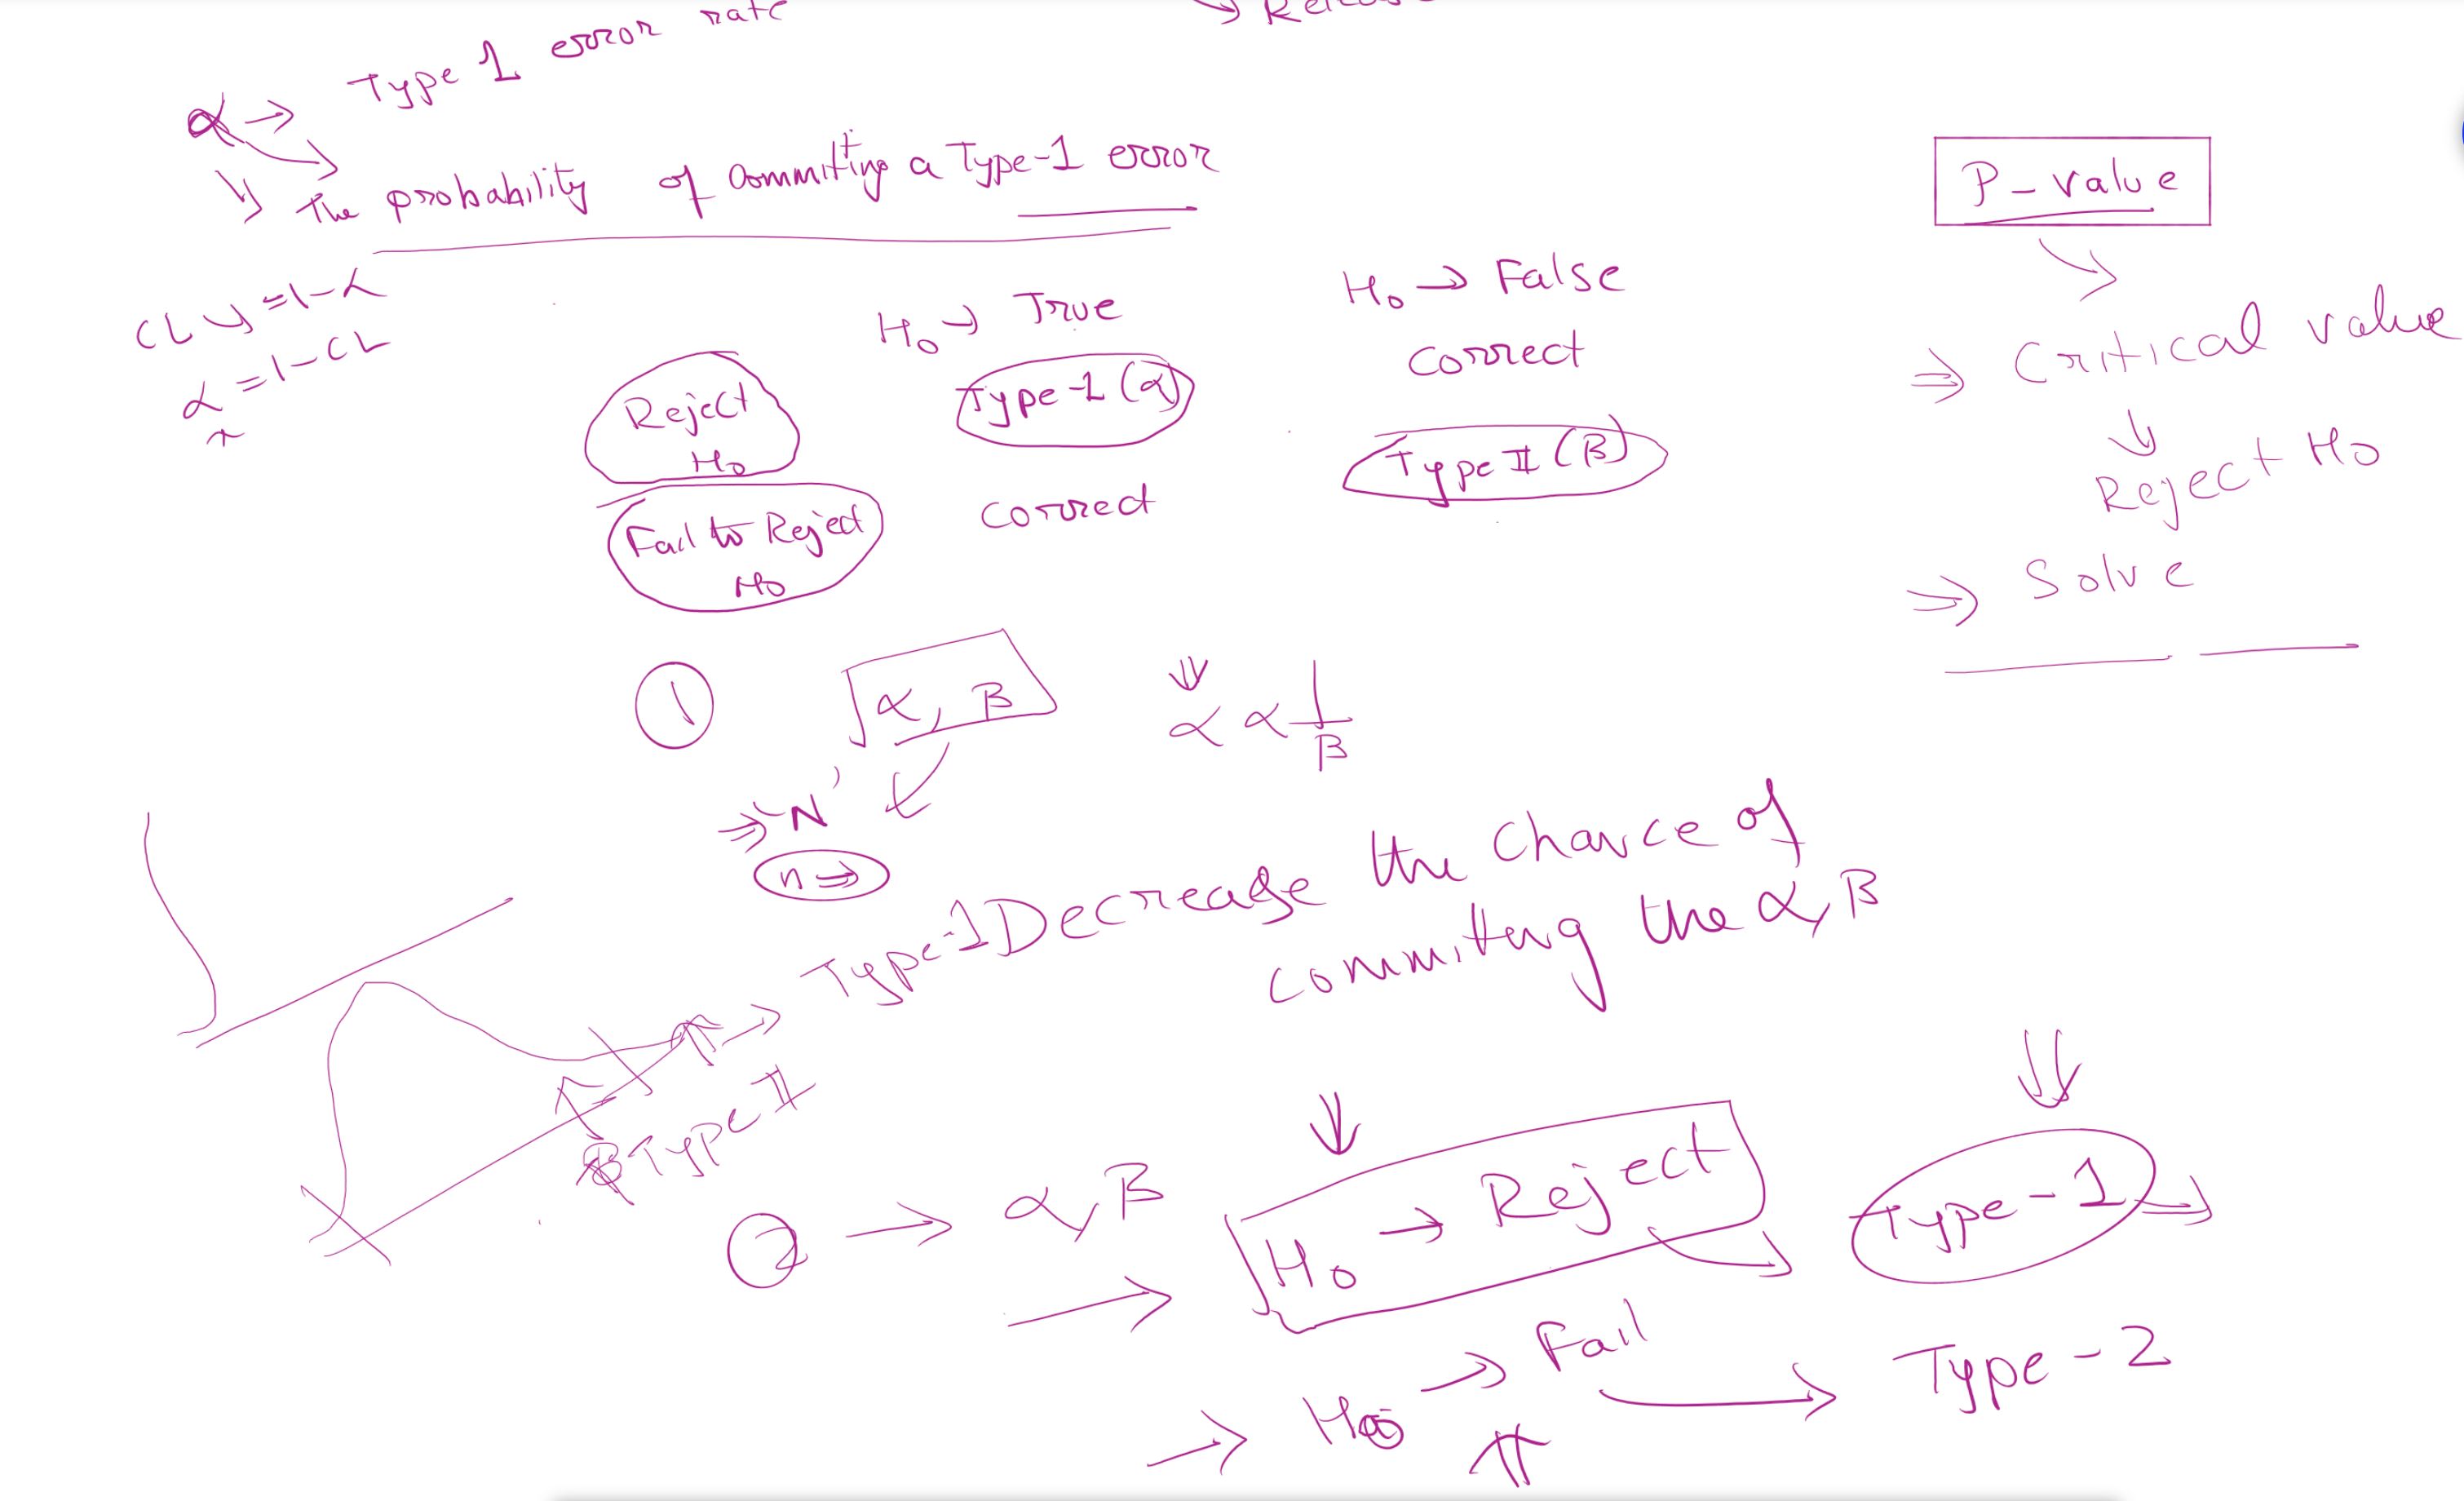 α → Type 1 error rate
The probability of committing a Type-1 error
CL = 1-α
α = 1-CL
H₀ → True
H₀ → False
Reject H₀
Type-1 (α)
Correct
Fail to Reject H₀
Correct
Type II (β)
P-value
⇒ Critical value
Reject H₀
⇒ Solve
① α, β
α ∝ 1/β
⇒ N
n →
Decrease the chance of
committing the α, β
→ Type-1
Type II
② → α, β
→ H₀ → Reject
Type-1 →
→ H₀ → Fail → Type-2